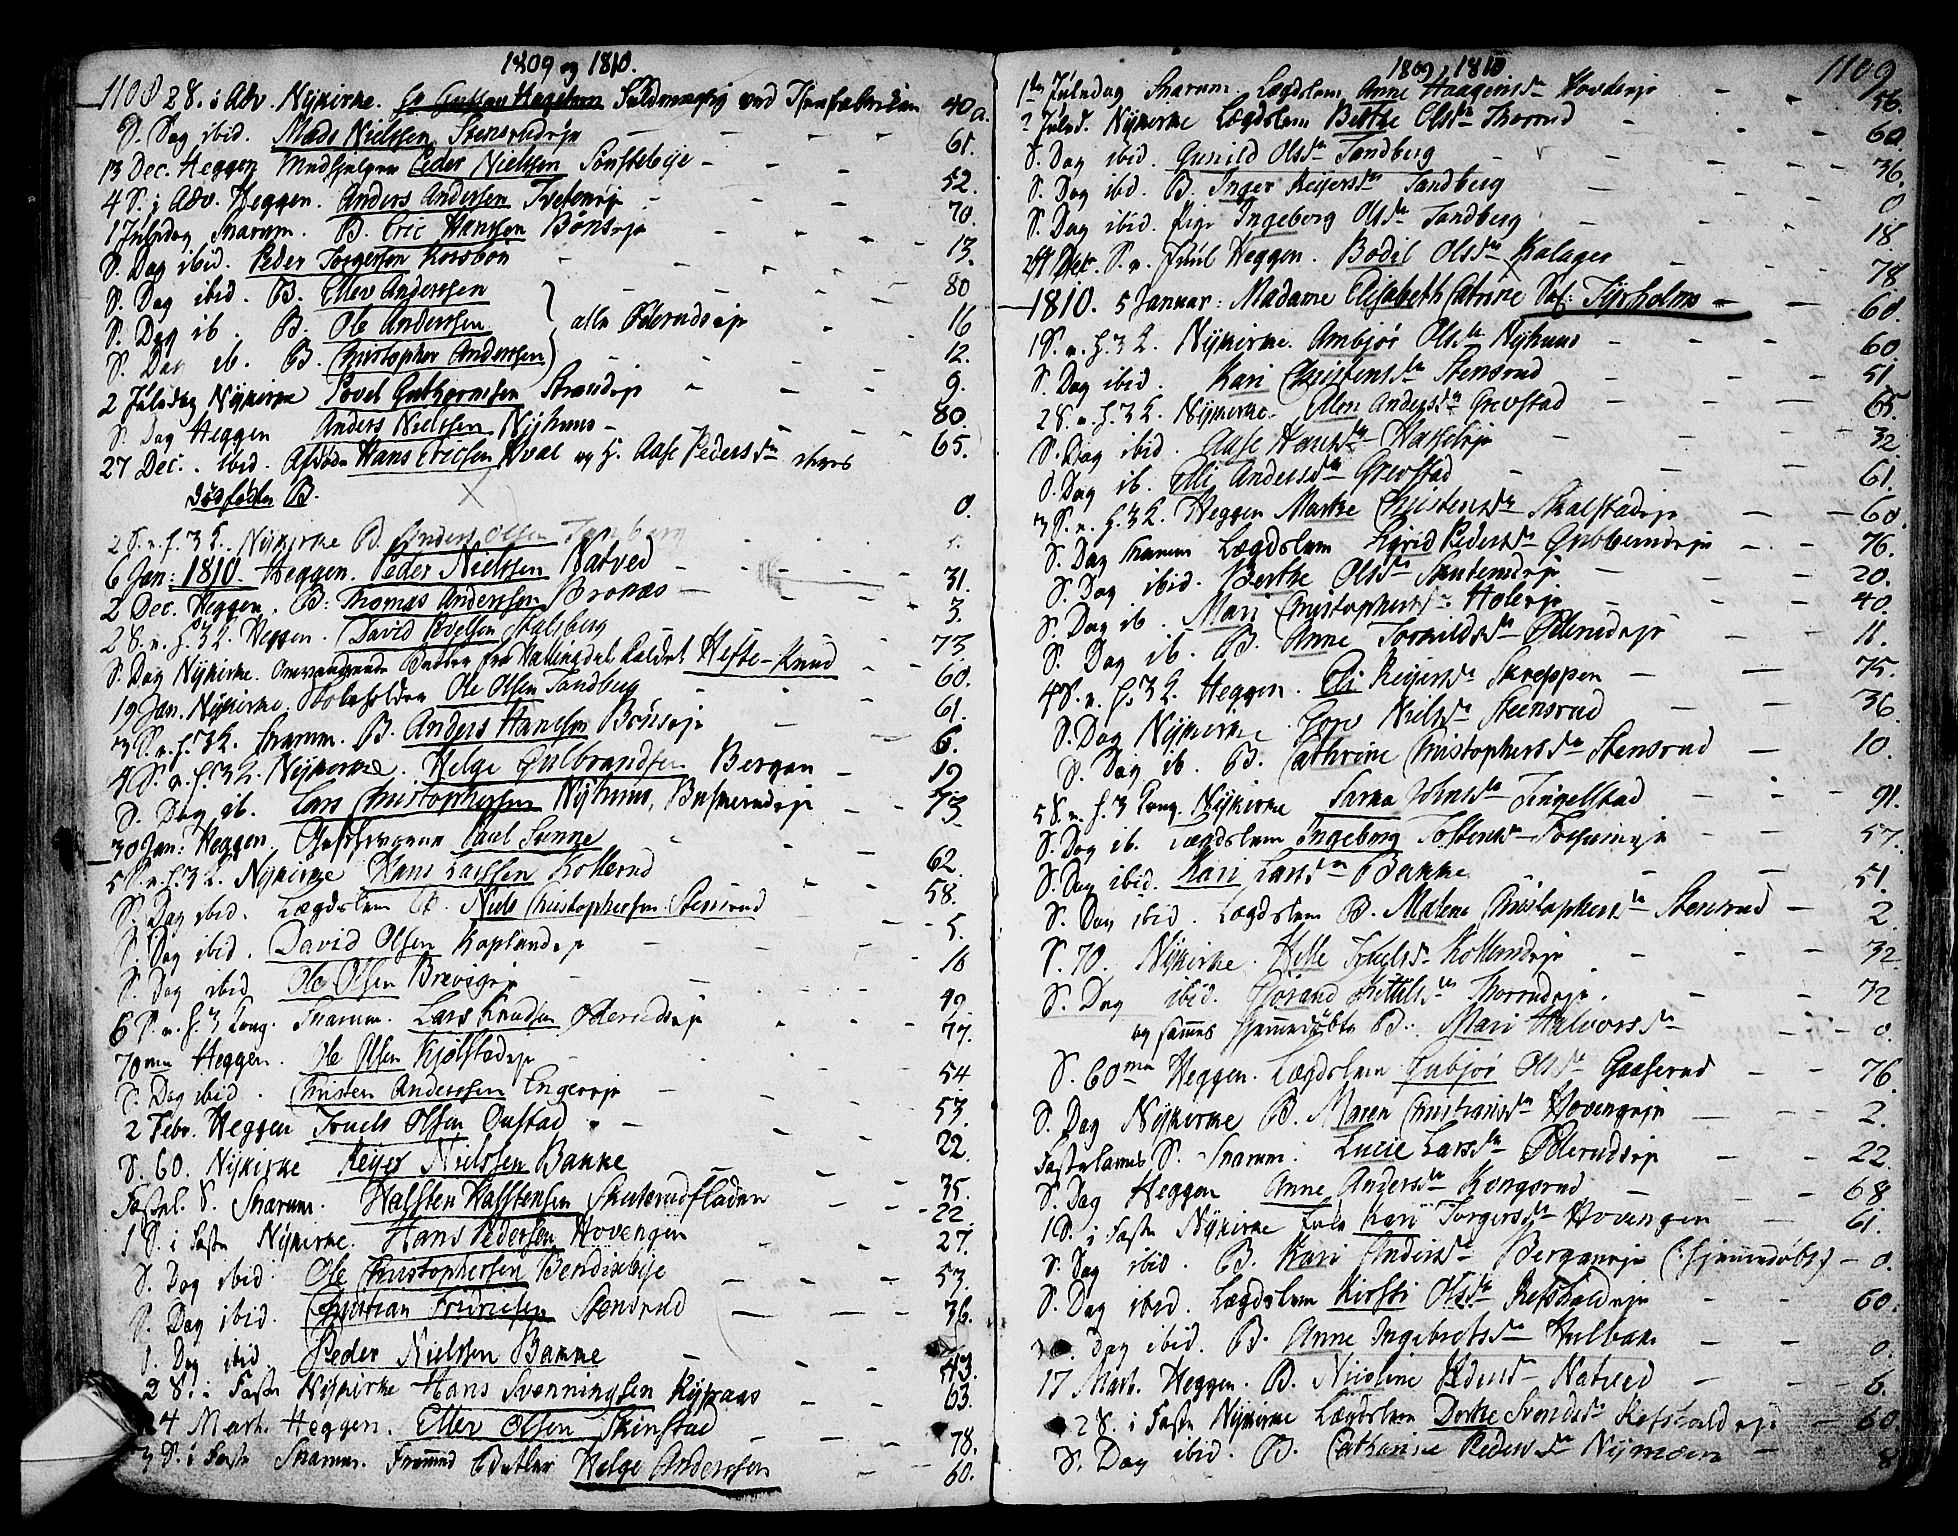 1809 og 1810.
1108 2 S. i Adv. Nykirke. Hr Gustav Hagelum Fuldmægtig ved 40 a.
S. Dag ibid. Mads Nielssen Stensrudeje 61.
13 Dec. Heggen Medhjelper Peder Nielssen Sonstebyje 52.
4 S. i Adv. Heggen. Anders Andersen 70.
1 Juledag Snarum. B. Eric Hanssen Bønseje 13.
S. Dag ibid. Peder Torgersen Korsbøn 80
S. Dag ibid. B. Ellev Anderssen
S. Dag ib. B. Ole Anderssen alle Øderudseje 16
S. Dag ib. B. Christopher Anderssen 12.
2 Juledag Nykirke Povel Guthormsen Strandeje 9.
S. Dag Heggen Anders Nielssen Nyhuus 80.
27 Dec. ibid. Afdøde Hans Ericsen Hval og h. Aase Peders Dr. 65.
dødfødte B. 0.
2 S. e. h. 3 K. Nykirke B. Anders Olsen Tandberg
6 Jan: 1810. Heggen. Peder Nielssen Natved 31.
2 Dec. Heggen. B: Thomas Anderssen Bronæs 3.
2 S. e. h. 3 K. Heggen. David Povelsen Skalsberg 73
S. Dag Nykirke. Omvandrende Betler fra Hallingdal kaldet Hefte-Knud 60.
19 Jan. Nykirke. Skoleholder Ole Olsen Tandberg 61.
3 S. e. h. 3 K. Snarum. B. Anders Hanssen Bønseje 6.
4 S. e. h. 3 K. Nykirke. Helge Gulbrandsen Bergan 19
S. Dag ib. Lars Christophersen Nyhuus, Buskerudeje 73
30 Jan: Heggen. Paul Sunne
5 S. e. h. 3 K. Nykirke Hans Larssen Kollerud 62.
S. Dag ibid. Lægdslem B. Niels Christophersen Stensrud 58.
S. Dag ibid. David Olsen Kaplandeje 5.
S. Dag ibid Ole Olsen Brevigeje 16
6 S. e. h. 3 Kong. Snarum. Lars Knudsen Øderudseje 49.
70me Heggen. Ole Olsen Kjølstadeje 77.
S. Dag ibid. Christen Anderssen Engereje 54
2 Febr. Heggen Truels Olsen Oustad 53.
S. 60. Nykirke Reyer Nielssen Bakke 22.
Fastel. S. Snarum. Halsten Halstensen Skuterudfladen 35.
1 S. i Faste Nykirke. Hans Pedersen Hovengen 22.
S. Dag ibid. Ole Christophersen Bendixbyje 27.
S. Dag ibid. Christian Fridricsen Stensrud 53.
S. Dag ibid. Peder Nielssen Bakke 36.
2 S. i Faste Nykirke Hans Svenningsen Ryghaas 43.
14 Mart. Heggen. Ellev Olsen Skinstad 63.
3 S. i Faste Snarum. Fremmed Betler Helge Anderssen 78.
60.
1809, 1810 1109
1te Juledag Snarum Lægdslem Anne Haagens Dr. 56.
2 Juled. Nykirke Lægdslem Berthe Ols Dr Thorrud 60.
S. Dag ibid. Gunild Ols Dr Tandberg 36.
S. Dag ibid. B. Inger Reyers Dr Tandberg 0
S. Dag ibid. Pige Ingeborg Ols Dr Tandberg 18.
31 Dec. S. e. Juul Heggen. Bodil Ols Dr Kalager 78.
1810. 5 Januar: Madame Elisabeth Catrine Sal: Tyrholms 60.
1 S. e. h. 3 K. Nykirke. Ambjør Ols Dr Nyhuus 60.
S. Dag ibid. Kari Christens Dr Stensrud 51.
2 S. e. h. 3 K. Nykirke. Anders Dr Grevstad 65.
S. Dag ibid. Aase Hans Dr Hasseleje 32.
S. Dag ib. Elli Anders Dr Grevstad 61.
3 S. e. h. 3 K. Heggen Marthe Christens Dr Skalstadeje 60.
S. Dag Snarum Lægdslem Sigrid Peders Dr Gubberudeje 76.
S. Dag ibid. Berthe Ols Dr Skuterudeje 20.
S. Dag ib. Mari Christophers Dr Holeeje 40.
S. Dag ib. B. Anne Torkilds Dr Øderudseje 11.
4 S. e. h. 3 K. Heggen. Eli Reyers Dr Skreppen 75.
S. Dag Nykirke. Goro Niels Dr Steensrud 36.
S. Dag ib. B. Cathrine Christophers Dr Stensrud 10.
5 S. e. h. 3 Kong. Nykirke Sarka Johns Dr Tingelstad 91.
S. Dag ib. Lægdslem Ingeborg Tostens Dr 57.
S. Dag ibid. Kari Lars Dr Bakke 51.
S. Dag ibid. Lægdslem B. Malene Christophers Dr Stensrud 2.
S. 70. Nykirke. Helle Truels Dr Kollerudeje 32.
S. Dag ibid. Gorand Kittils Dr Thorrudeje. 32
og sammes hjemmedøbte B: Mari Halvors Dr 0.
S. 60me Heggen. Lægdslem Gubjør Ols Dr Gaaserud 76.
S. Dag Nykirke B. Maren Christians Dr Hovengeje 2.
Fastelavns S. Snarum. Lucie Lars Dr Øderudseje 22.
S. Dag Heggen Anne Anders Dr Kongsrud 68.
1 S. i Faste Nykirke Enke Kari Torgers Dr Hovengen 61.
S. Dag ibid. B. Kari Anders Dr Berganeje (: hjemmedøbt :) 0.
S. Dag ibid. Lægdslem Kirsti Ols Dr Refshaldeje 60.
S. Dag ibid. B. Anne Ingebrets Dr Hulbak 0.
17 Mart. Heggen. B. Nicoline Peders Dr Natved 6.
2 S. i Faste Nykirke Lægdslem Dorthe Svends Dr Refshaldeje 60.
S. Dag ibid. B. Catharine Peders Dr Nymoen 8